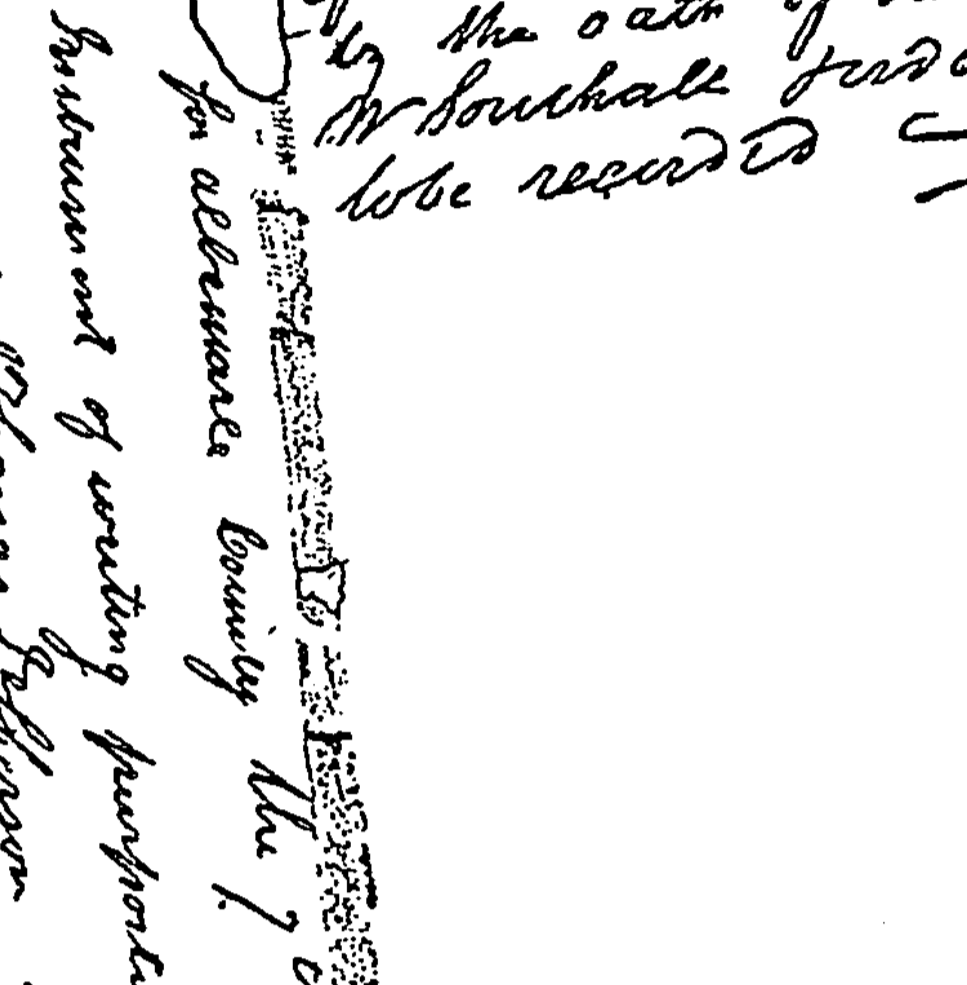 by the oath of
W Southall
to be recorded
for albemarle County the 7
Instrument of writing purporti
Thomas Jefferson